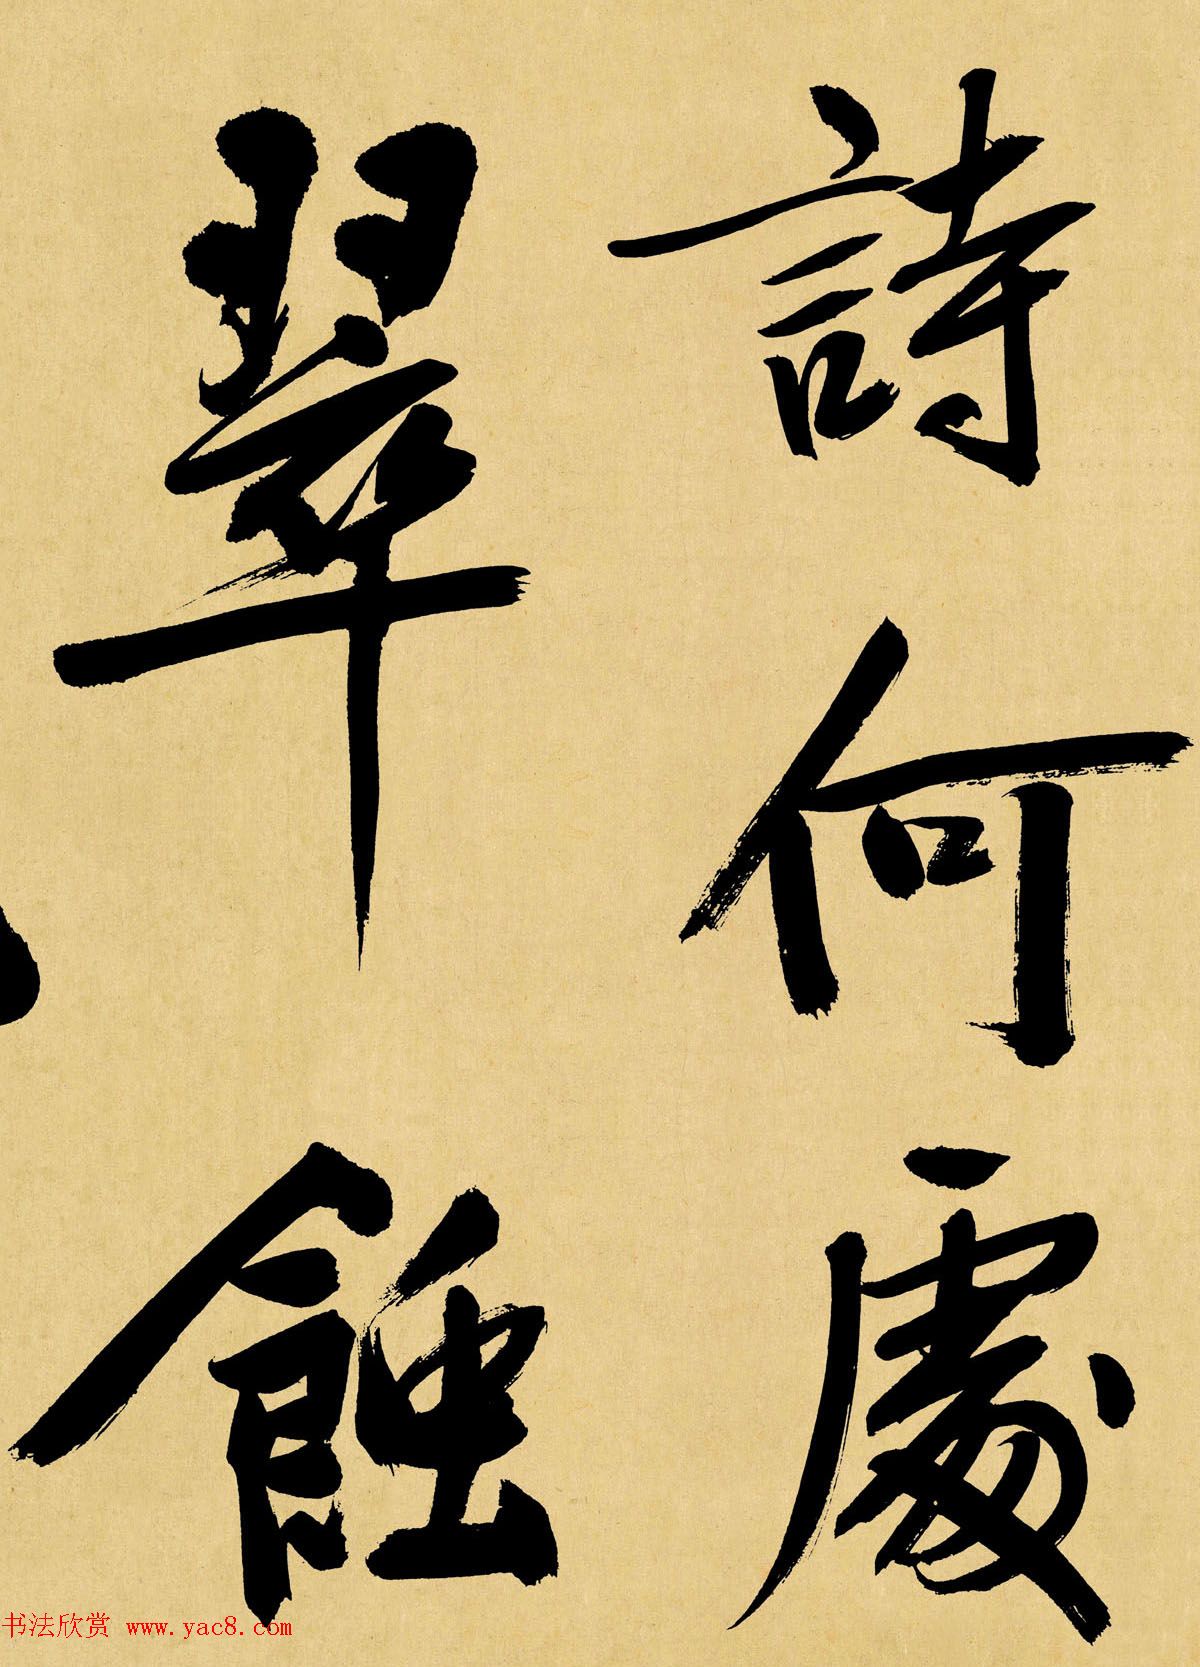 詩何處
翠蝕
书法欣赏 www.yac8.com